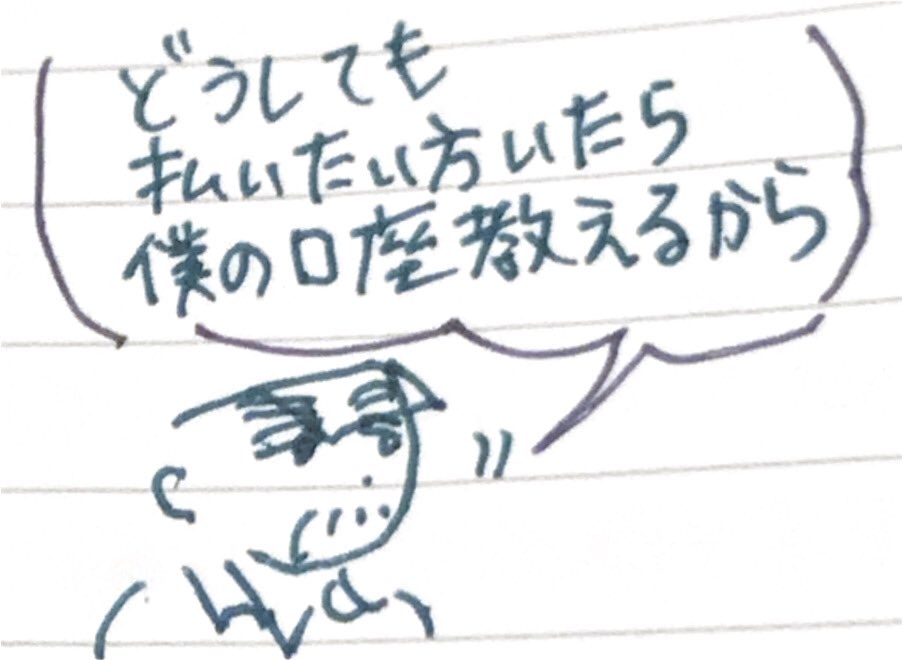 どうしても
払いたい方いたら
僕の口座教えるから